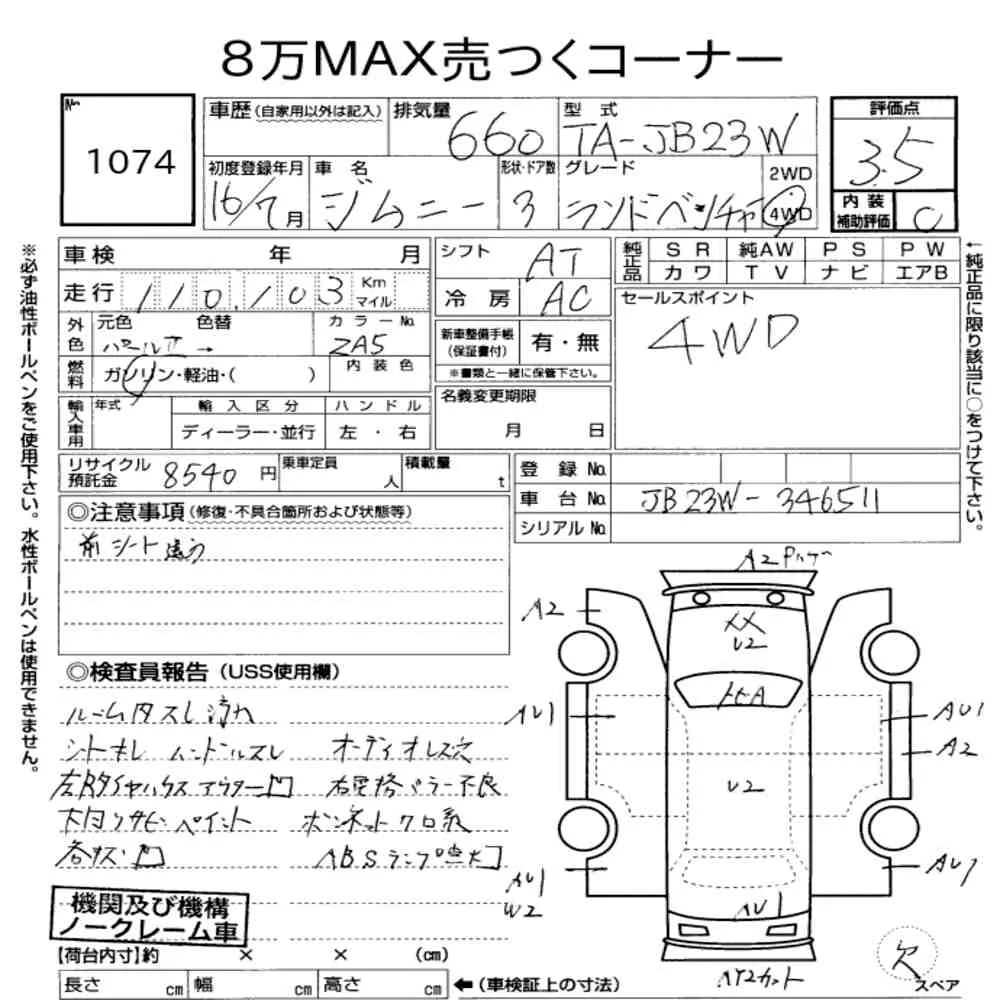 8万MAX売つくコーナー
No.
1074
車歴 (自家用以外は記入)
排気量
660
型式
TA-JB23W
評価点
3.5
初度登録年月
16/7月
車名
ジムニー
形状・ドア数
3
グレード
ランドベンチャー
2WD
4WD
内装
補助評価
C
車検 年 月
走行 110,103 Km マイル
外色
元色 色替
パールⅡ →
カラーNo.
ZA5
燃料
ガソリン・軽油・( )
内装色
輸入車用
年式
輸入区分
ディーラー・並行
ハンドル
左・右
シフト
AT
冷房
AC
新車整備手帳
(保証書付)
有・無
※書類と一緒に保管下さい。
名義変更期限
月 日
純正品
SR 純AW PS PW
カワ TV ナビ エアB
セールスポイント
4WD
リサイクル
預託金
8540円
乗車定員
人
積載量
t
登録No.
車台No. JB23W-346511
シリアルNo.
◎注意事項 (修復・不具合箇所および状態等)
前シート違う
◎検査員報告 (USS使用欄)
ルーム内スレ汚れ
シートキレ ハンドルスレ オーディオレス穴
ペイント
ボンネットクロ系
ABSランプ点灯
機関及び機構
ノークレーム車
【荷台内寸】約 × × (cm)
長さ cm 幅 cm 高さ cm
←(車検証上の寸法)
A2
A2
XX
U2
トビA
AU1
AU1
A2
U2
AU1
W2
AU1
AU1
欠
スペア
※必ず油性ボールペンをご使用下さい。水性ボールペンは使用できません。
←純正品に限り該当に○をつけて下さい。